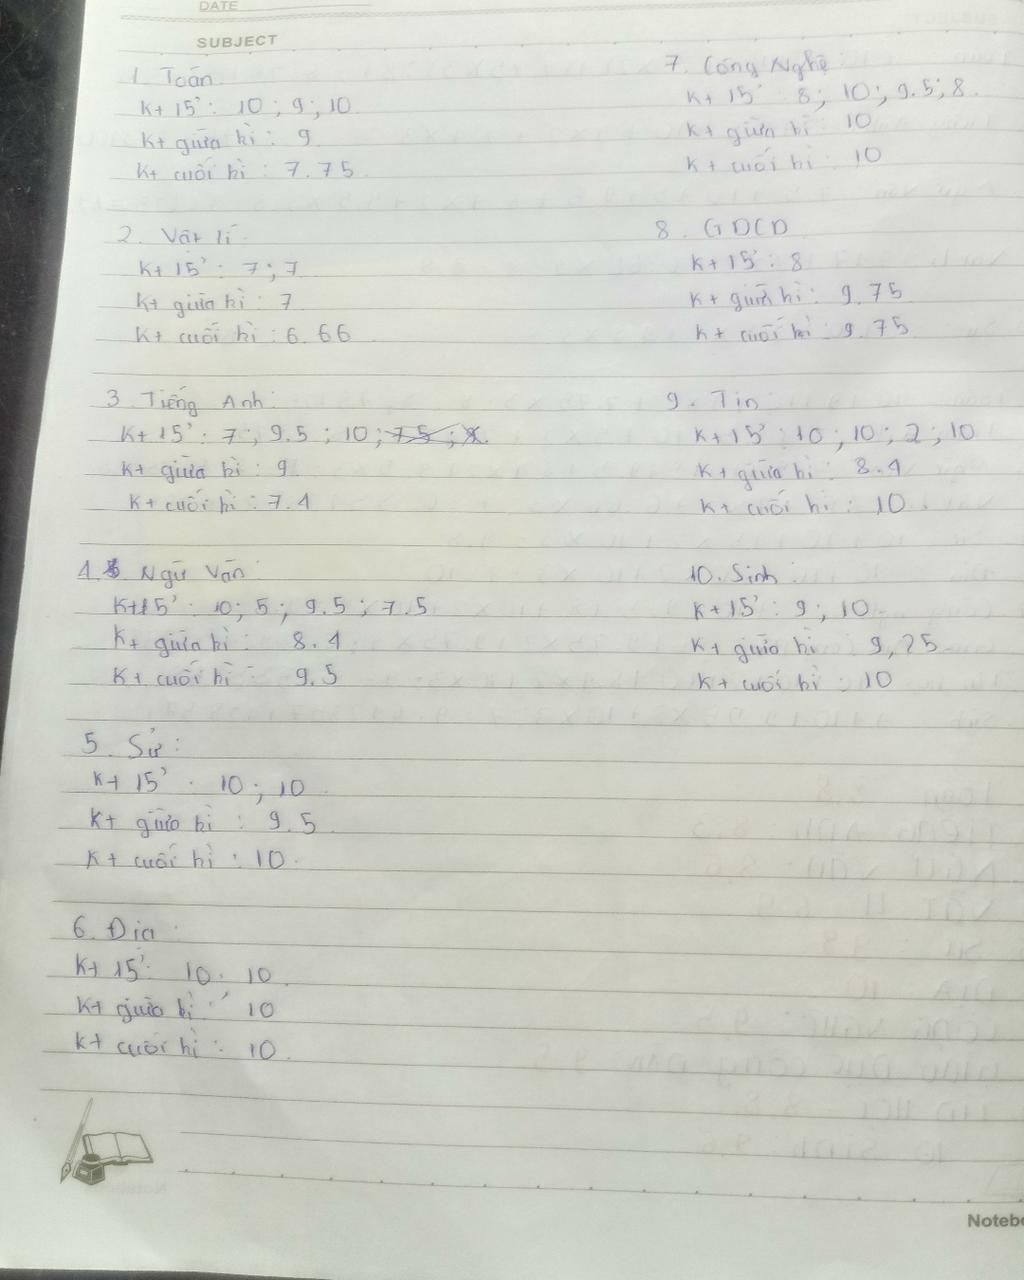 DATE
SUBJECT
1. Toán
Kt 15' : 10 ; 9 ; 10
Kt giữa kì : 9
Kt cuối kì : 7.75
2. Vật lí
Kt 15' : 7 ; 7
Kt giữa kì : 7
Kt cuối kì : 6.66
3. Tiếng Anh:
Kt 15' : 7 ; 9.5 ; 10 ; 7.5 ; 8.
Kt giữa kì : 9
Kt cuối kì : 7.4
4. Ngữ Văn :
Kt 15' : 10 ; 5 ; 9.5 ; 7.5
Kt giữa kì : 8.4
Kt cuối kì : 9.5
5. Sử :
Kt 15' : 10 ; 10
Kt giữa kì : 9.5
Kt cuối kì : 10
6. Địa :
Kt 15' : 10 . 10
Kt giữa kì : 10
Kt cuối kì : 10
7. Công Nghệ
Kt 15' : 8 ; 10 ; 9.5 ; 8
Kt giữa kì : 10
Kt cuối kì : 10
8. GDCD
Kt 15' : 8
Kt giữa kì : 9.75
Kt cuối kì : 9.75
9. Tin :
Kt 15' : 10 ; 10 ; 2 ; 10
Kt giữa kì : 8.4
Kt cuối kì : 10
10. Sinh :
Kt 15' : 9 ; 10
Kt giữa kì : 9,25
Kt cuối kì : 10